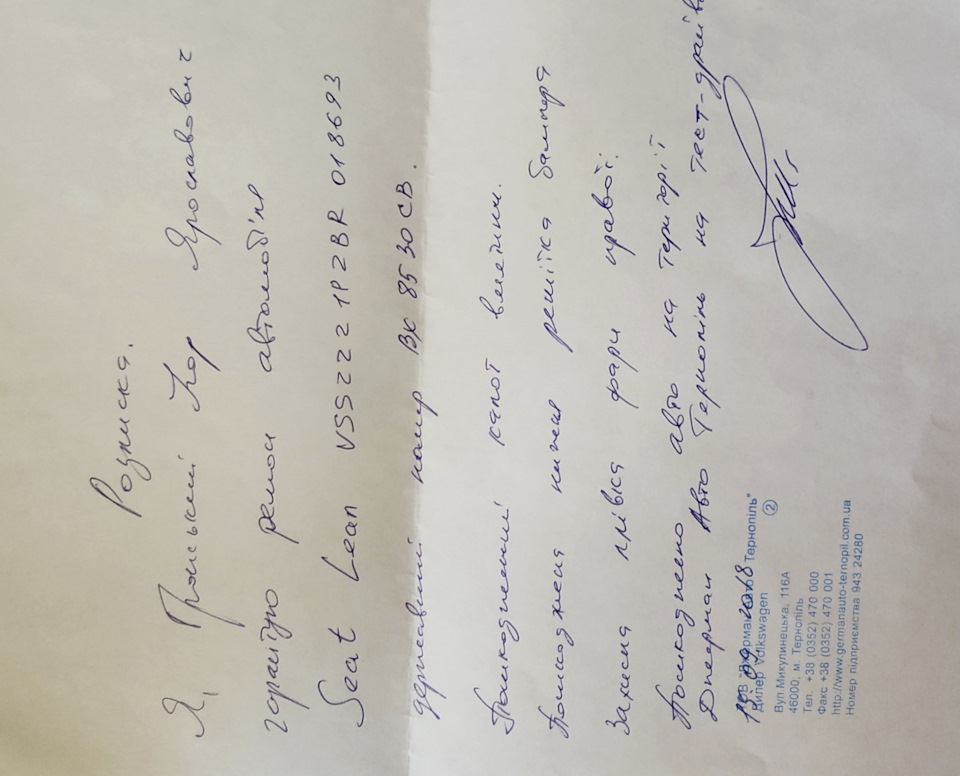 Розписка.
Я, Ігор Ярославович
гарантую ремонт автомобіля
Seat Leon VSSZZZ1PZBR018693
державний номер ВХ 8530 СВ.
Пошкоджений капот вмятини.
Пошкоджена нижня решітка бампера
Захисна плівка фари правої.
Пошкоджено авто на території
Джерман Авто Тернопіль на тест-драйві
2018
ТОВ "Джерман Авто Тернопіль"
Дилер Volkswagen
②
Вул.Микулинецька, 116А
46000, м. Тернопіль
Тел. +38 (0352) 470 000
Факс +38 (0352) 470 001
http://www.germanauto-ternopil.com.ua
Номер підприємства 943 24280